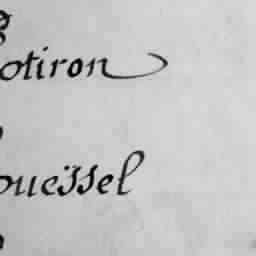 otiron
ouëssel